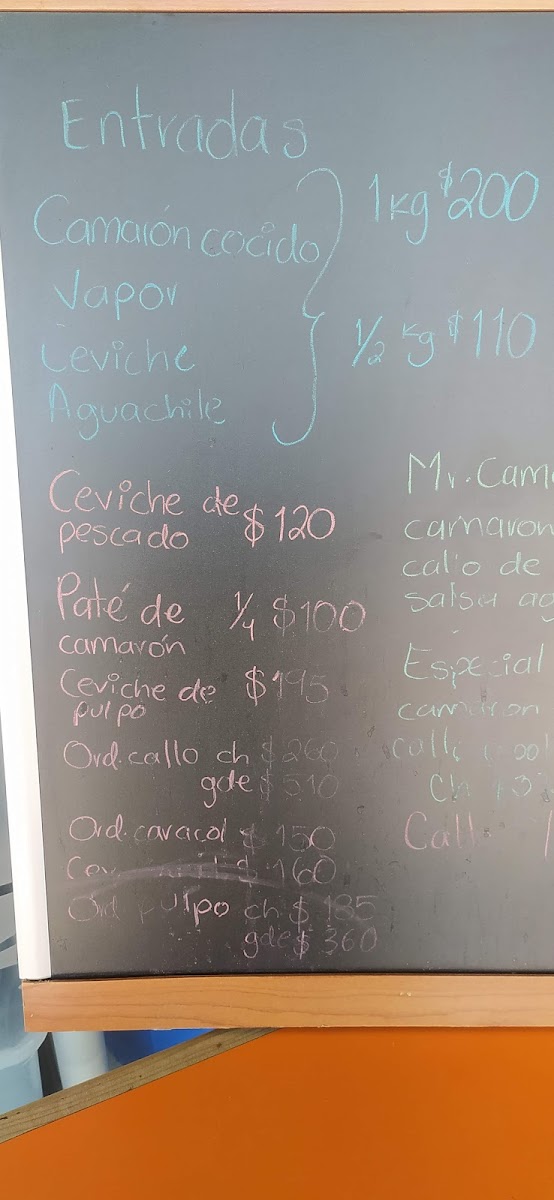 Entradas
Camarón cocido
Vapor
Ceviche
Aguachile
1 kg $200
1/2 kg $110
Ceviche de
pescado $120
Paté de 1/4 $100
camarón
Ceviche de $195
pulpo
Ord. callo ch $260
gde $510
Ord. caracol $150
$160
Ord pulpo ch $185
gde $360
Mr. Cam
camaron
callo de
salsa ag
Especial
camaron
Ch
Call